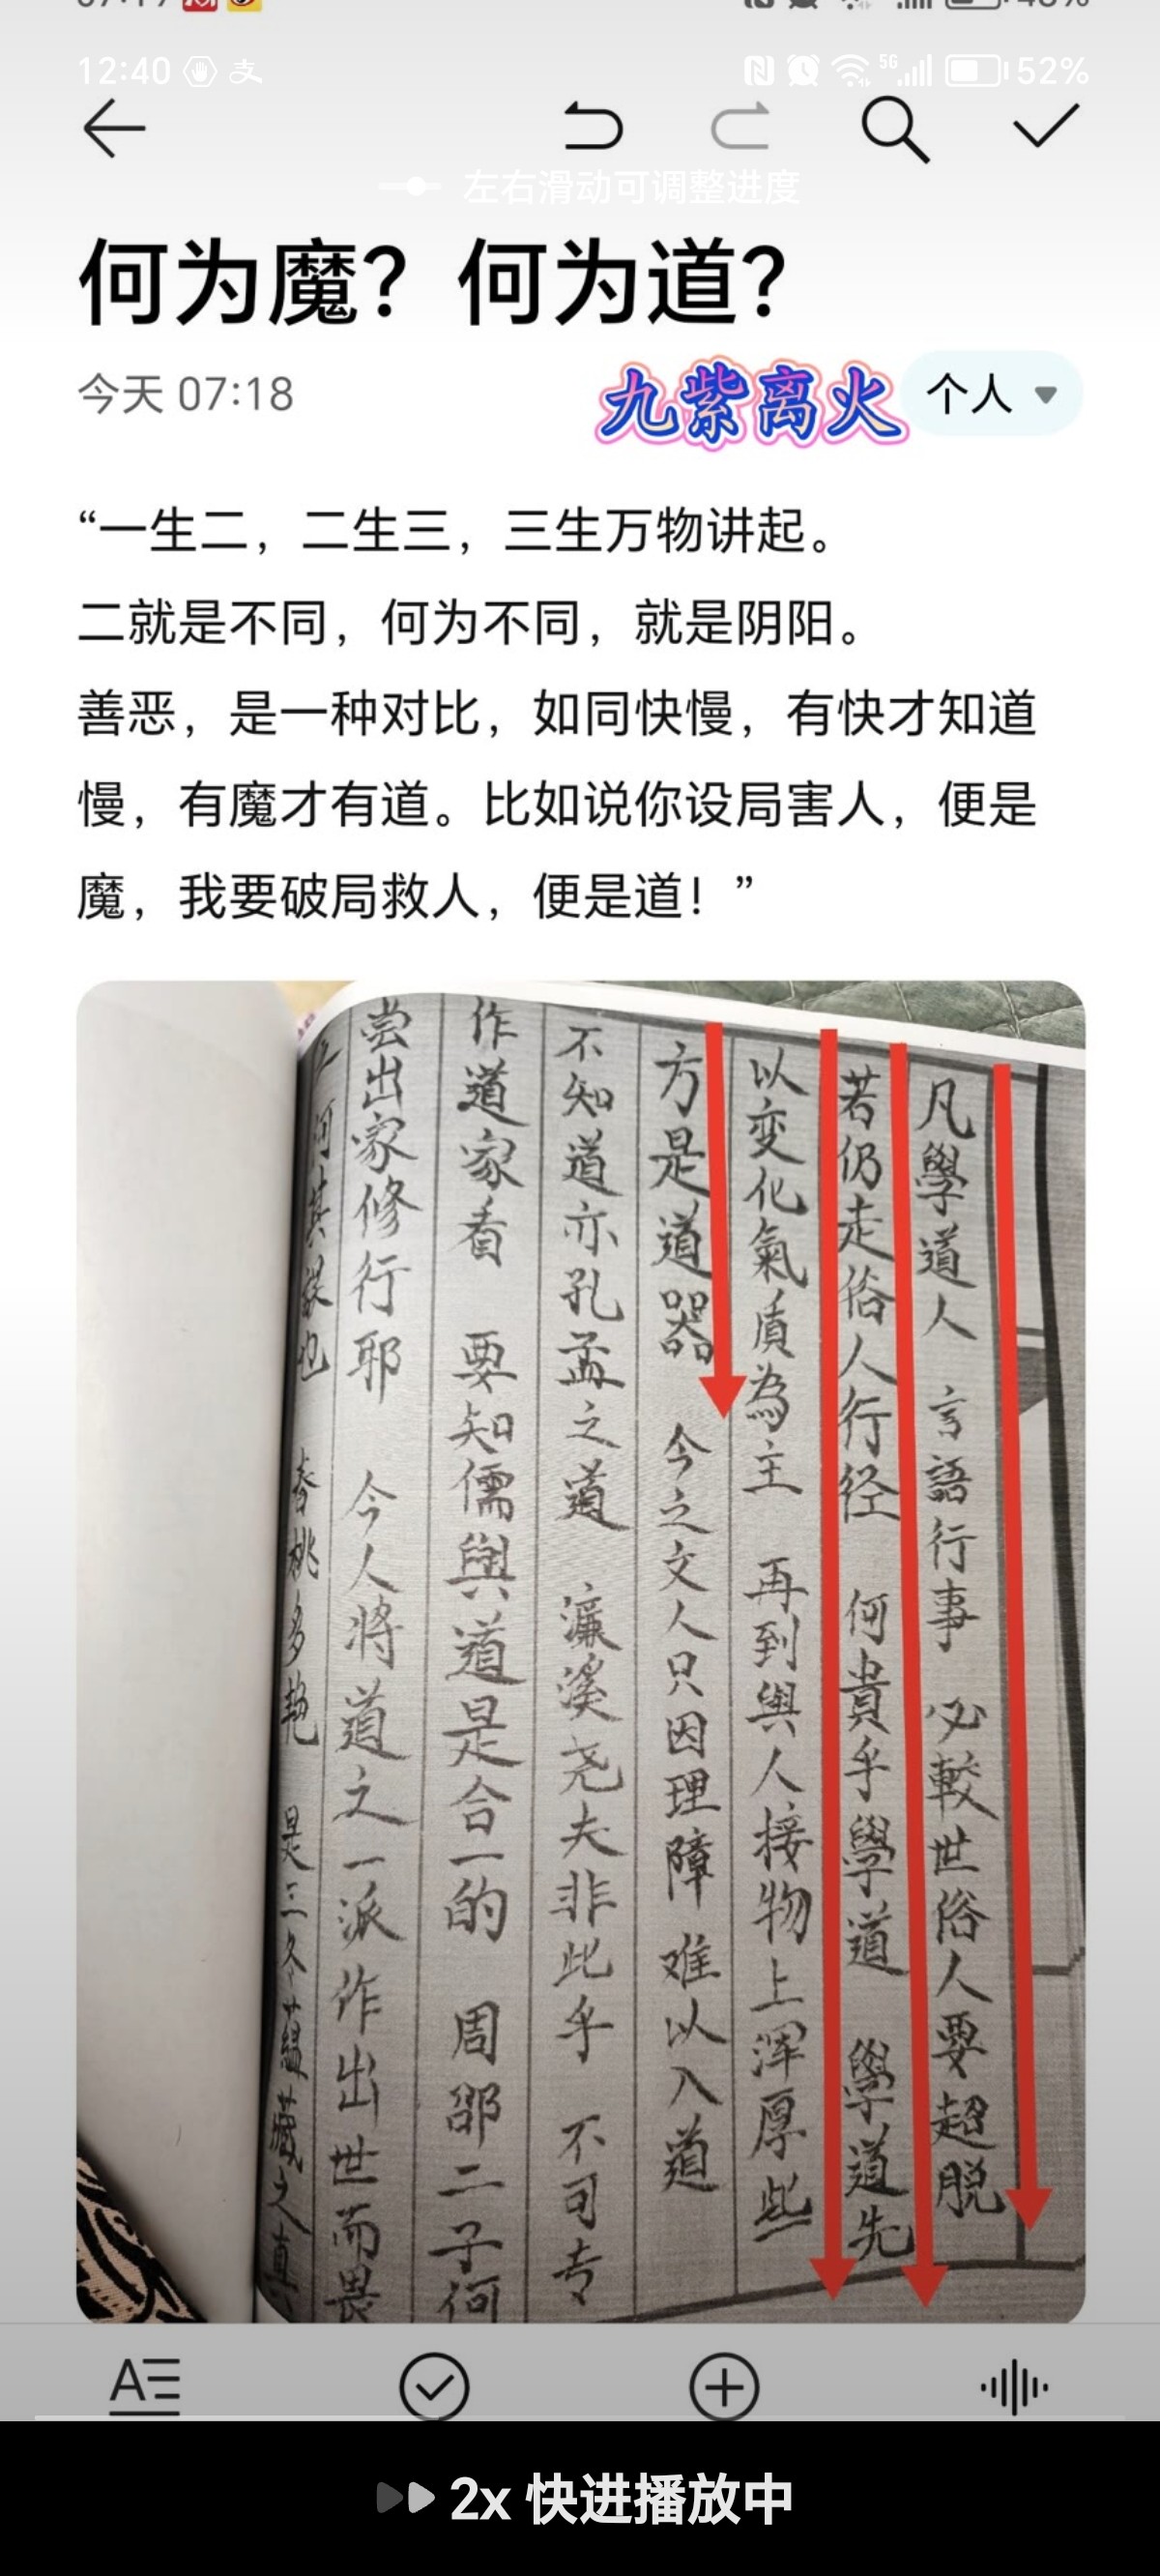 12:40 支 5G 52%
左右滑动可调整进度
何为魔？何为道？
今天 07:18
九紫离火
个人
“一生二，二生三，三生万物讲起。
二就是不同，何为不同，就是阴阳。
善恶，是一种对比，如同快慢，有快才知道
慢，有魔才有道。比如说你设局害人，便是
魔，我要破局救人，便是道！”
凡學道人 言語行事 必較世俗人要超脱
若仍走俗人行径 何貴乎學道 學道先
以变化氣质為主 再到與人接物上渾厚些
方是道器 今之文人只因理障 难以入道
不知道亦孔孟之道 濂溪尧夫非此乎 不可专
作道家看 要知儒與道是合一的 周邵二子何
尝出家修行耶 今人將道之一派作出世而畏
春桃多艳 是三冬蕴藏之真
2x 快进播放中